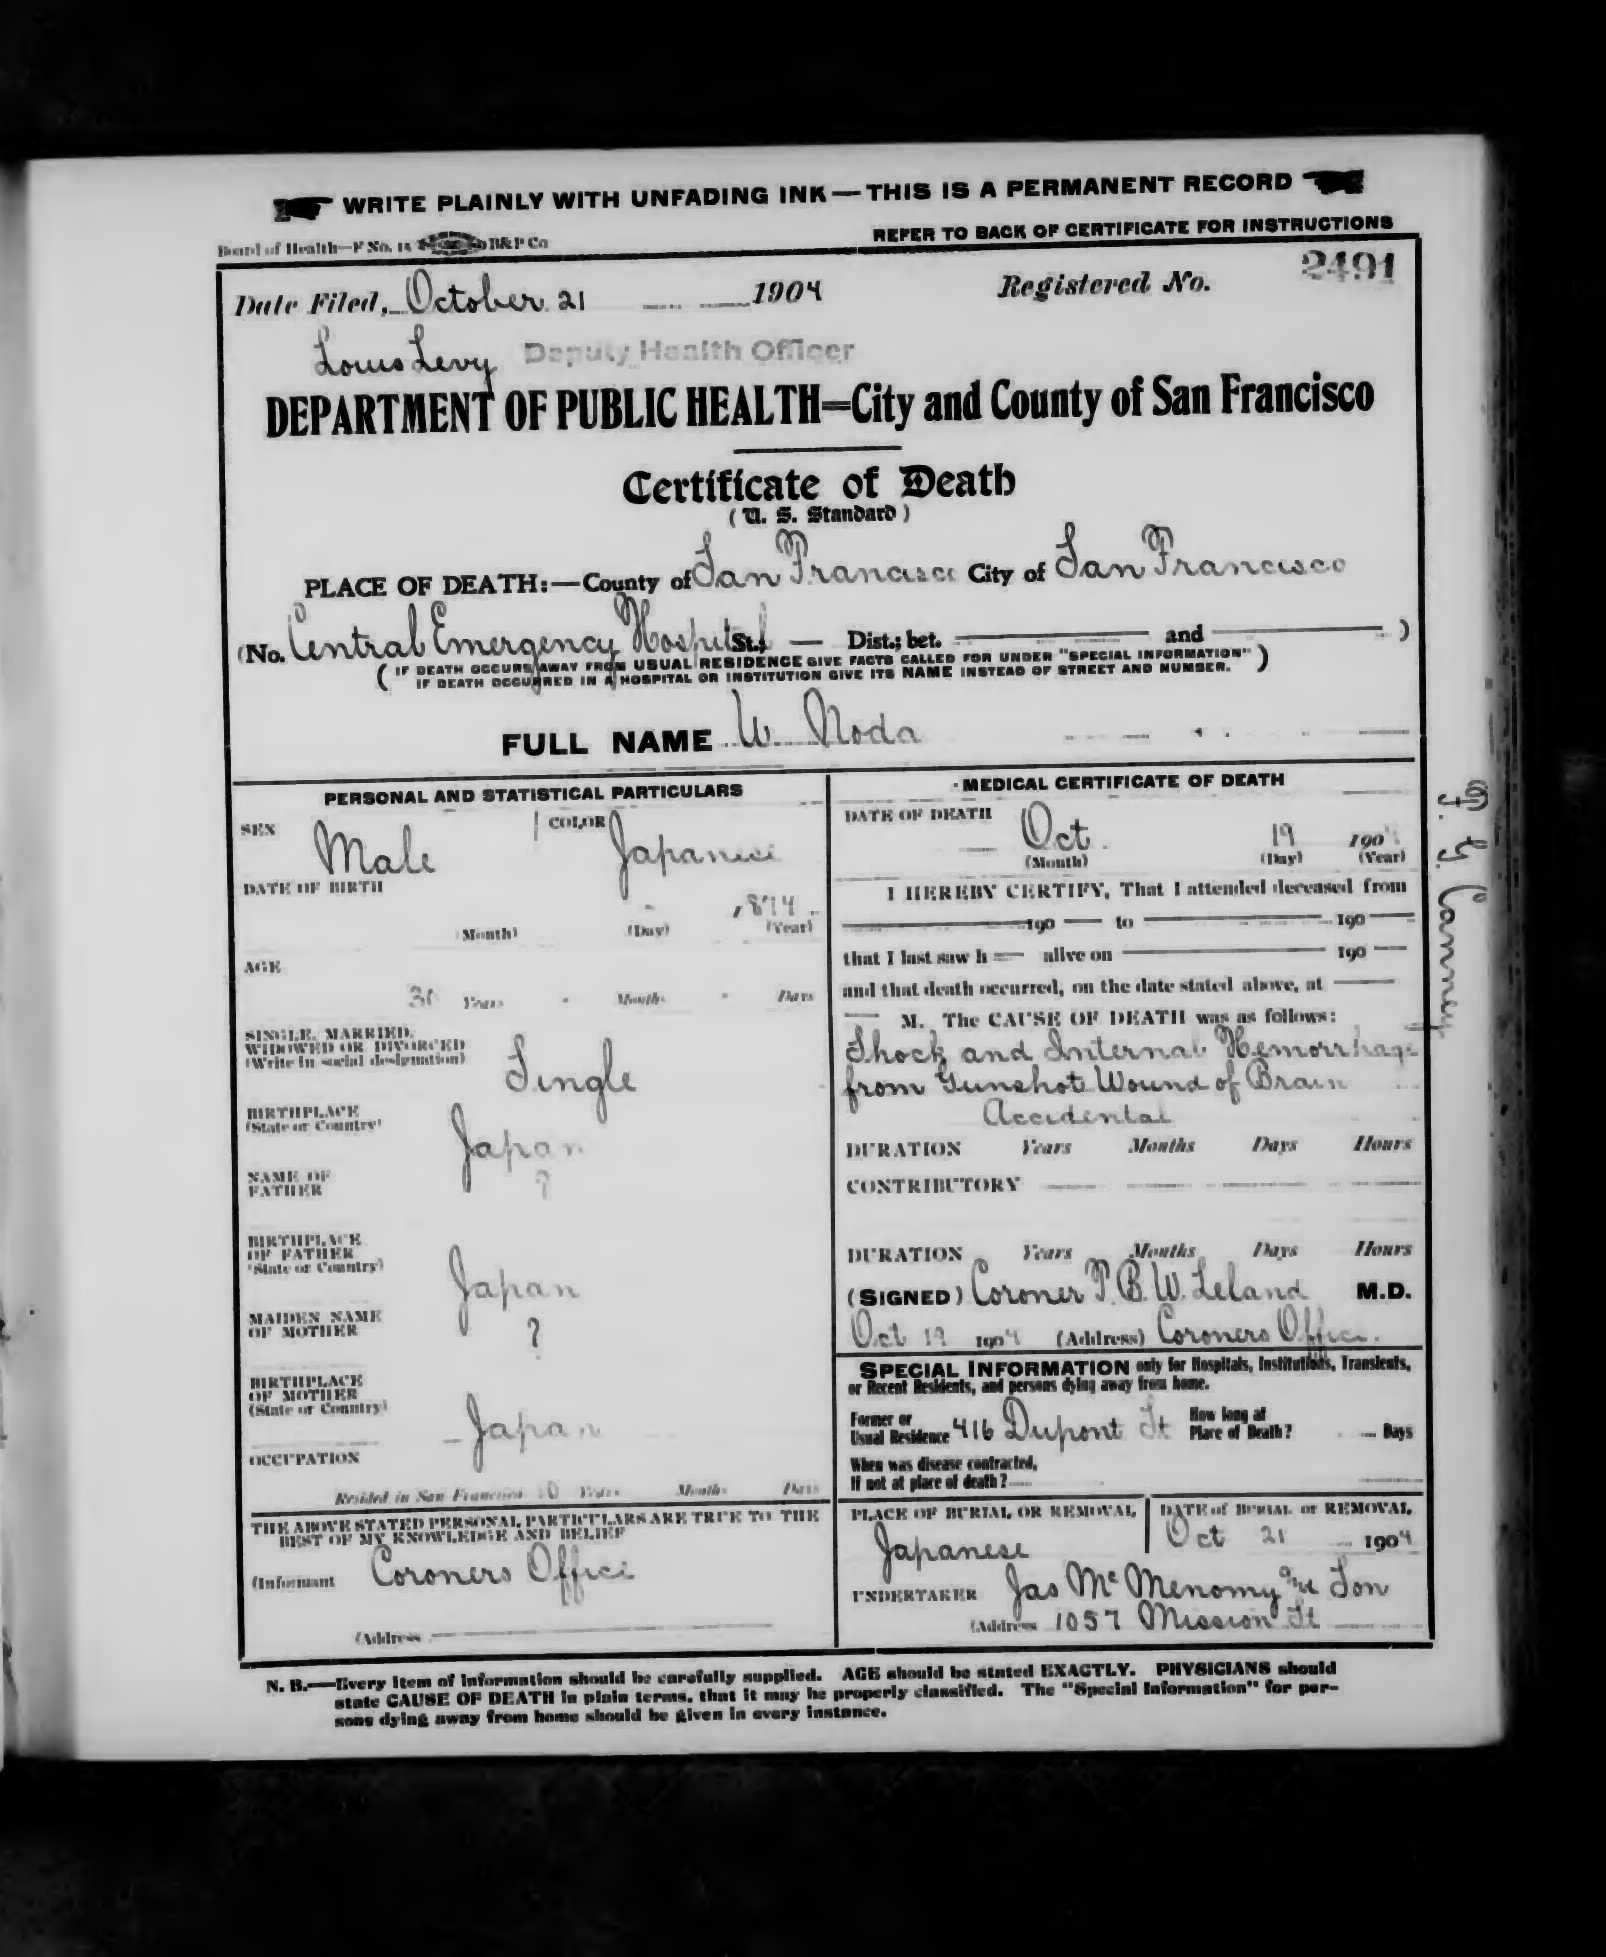 WRITE PLAINLY WITH UNFADING INK—THIS IS A PERMANENT RECORD
Board of Health—F No. 15 B&P Co
REFER TO BACK OF CERTIFICATE FOR INSTRUCTIONS
Date Filed, October 21 1904
Registered No. 2491
Louis Levy Deputy Health Officer
DEPARTMENT OF PUBLIC HEALTH=City and County of San Francisco
Certificate of Death
(U. S. Standard)
PLACE OF DEATH:—County of San Francisco City of San Francisco
(No. Central Emergency Hospital St.; — Dist.; bet. and )
( IF DEATH OCCURS AWAY FROM USUAL RESIDENCE GIVE FACTS CALLED FOR UNDER "SPECIAL INFORMATION" )
IF DEATH OCCURRED IN A HOSPITAL OR INSTITUTION GIVE ITS NAME INSTEAD OF STREET AND NUMBER.
FULL NAME W. Noda
PERSONAL AND STATISTICAL PARTICULARS
SEX Male COLOR Japanese
DATE OF BIRTH
1874
(Month) (Day) (Year)
AGE
30 Years - Months - Days
SINGLE, MARRIED,
WIDOWED OR DIVORCED
(Write in social designation) Single
BIRTHPLACE
(State or Country) Japan
NAME OF
FATHER ?
BIRTHPLACE
OF FATHER
(State or Country) Japan
MAIDEN NAME
OF MOTHER ?
BIRTHPLACE
OF MOTHER
(State or Country) Japan
OCCUPATION
Resided in San Francisco Years Months Days
THE ABOVE STATED PERSONAL PARTICULARS ARE TRUE TO THE
BEST OF MY KNOWLEDGE AND BELIEF
(Informant Coroners Office
(Address
MEDICAL CERTIFICATE OF DEATH
DATE OF DEATH
Oct. 19 1904
(Month) (Day) (Year)
I HEREBY CERTIFY, That I attended deceased from
190 to 190
that I last saw h — alive on 190 —
and that death occurred, on the date stated above, at
M. The CAUSE OF DEATH was as follows:
Shock and Internal Hemorrhage
from Gunshot Wound of Brain
Accidental
DURATION Years Months Days Hours
CONTRIBUTORY
DURATION Years Months Days Hours
(SIGNED) Coroner T. B. W. Leland M.D.
Oct 19 1904 (Address) Coroners Office.
SPECIAL INFORMATION only for Hospitals, Institutions, Transients,
or Recent Residents, and persons dying away from home.
Former or
Usual Residence 416 Dupont St How long at
Place of Death? Days
When was disease contracted,
If not at place of death?
PLACE OF BURIAL OR REMOVAL DATE of BURIAL or REMOVAL
Japanese Oct 21 1904
UNDERTAKER Jas McMenomy and Son
(Address 1057 Mission St
N. B.—Every item of information should be carefully supplied. AGE should be stated EXACTLY. PHYSICIANS should
state CAUSE OF DEATH in plain terms, that it may be properly classified. The "Special Information" for per-
sons dying away from home should be given in every instance.